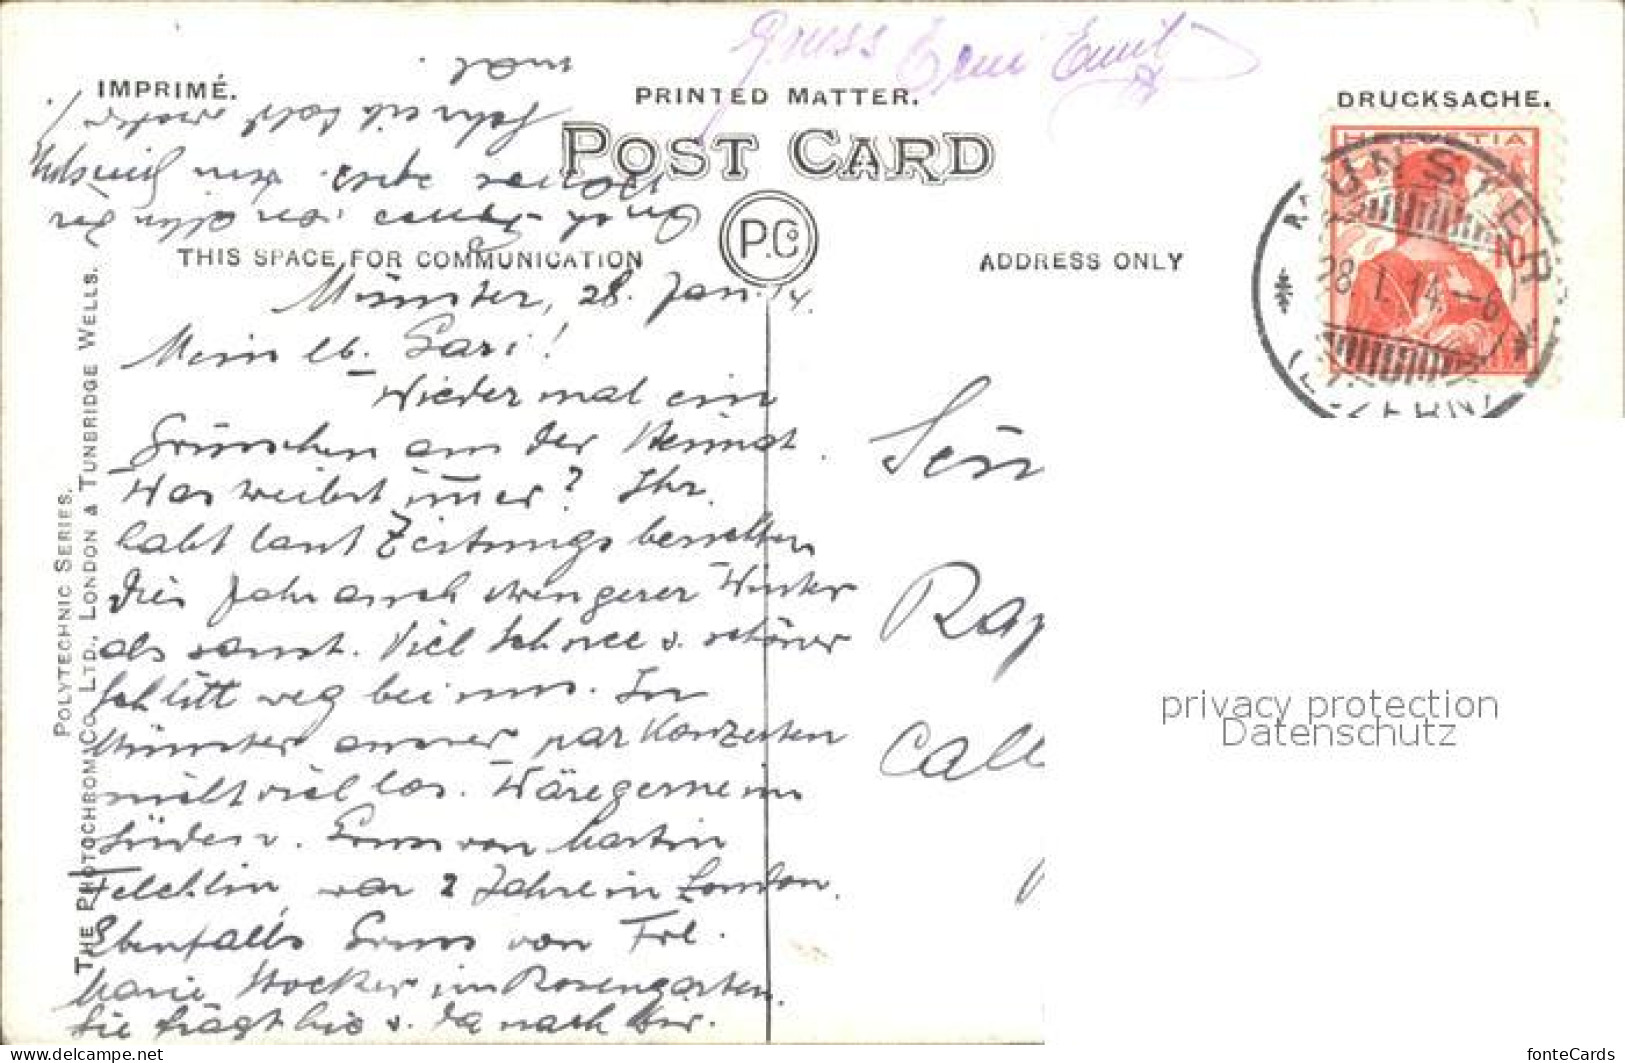 Gruss Erni Emil
mal.
IMPRIMÉ.
PRINTED MATTER.
DRUCKSACHE.
POST CARD
HELVETIA
MÜNSTER
28. I. 14.-6
(LUZERN)
P.Co
THIS SPACE FOR COMMUNICATION
ADDRESS ONLY
POLYTECHNIC SERIES.
THE PHOTOCHROM CO. LTD., LONDON & TUNBRIDGE WELLS.
Münster, 28. Jan. 14.
Mein lb. Sari!
Wieder mal ein
Grüsschen aus der Heimat.
Was weibst immer? Ihr
habt laut Zeitungs
dies Jahr auch strengerer Winter
als sonst. Viel Schnee u. schöner
Schlittweg bei uns. In
Münster ausser par Konzerten
nicht viel los. Wäre gerne im
Süden. Gruss von Martin
Felchlin, war 2 Jahre in London.
Ebenfalls Gruss von Frl.
Marie Stocker im Rosengarten.
Sie frägt hie u. da nach Dir.
Sen
Ray
Call
privacy protection
Datenschutz
delcampe.net
fonteCards